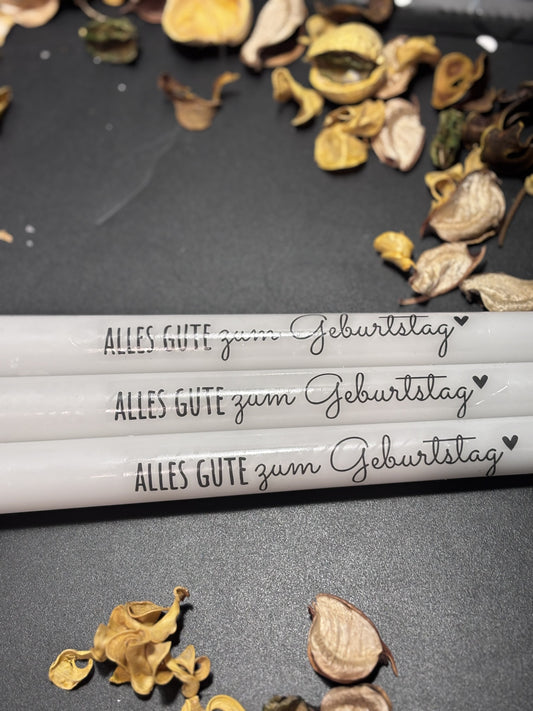 ALLES GUTE zum Geburtstag
ALLES GUTE zum Geburtstag
ALLES GUTE zum Geburtstag